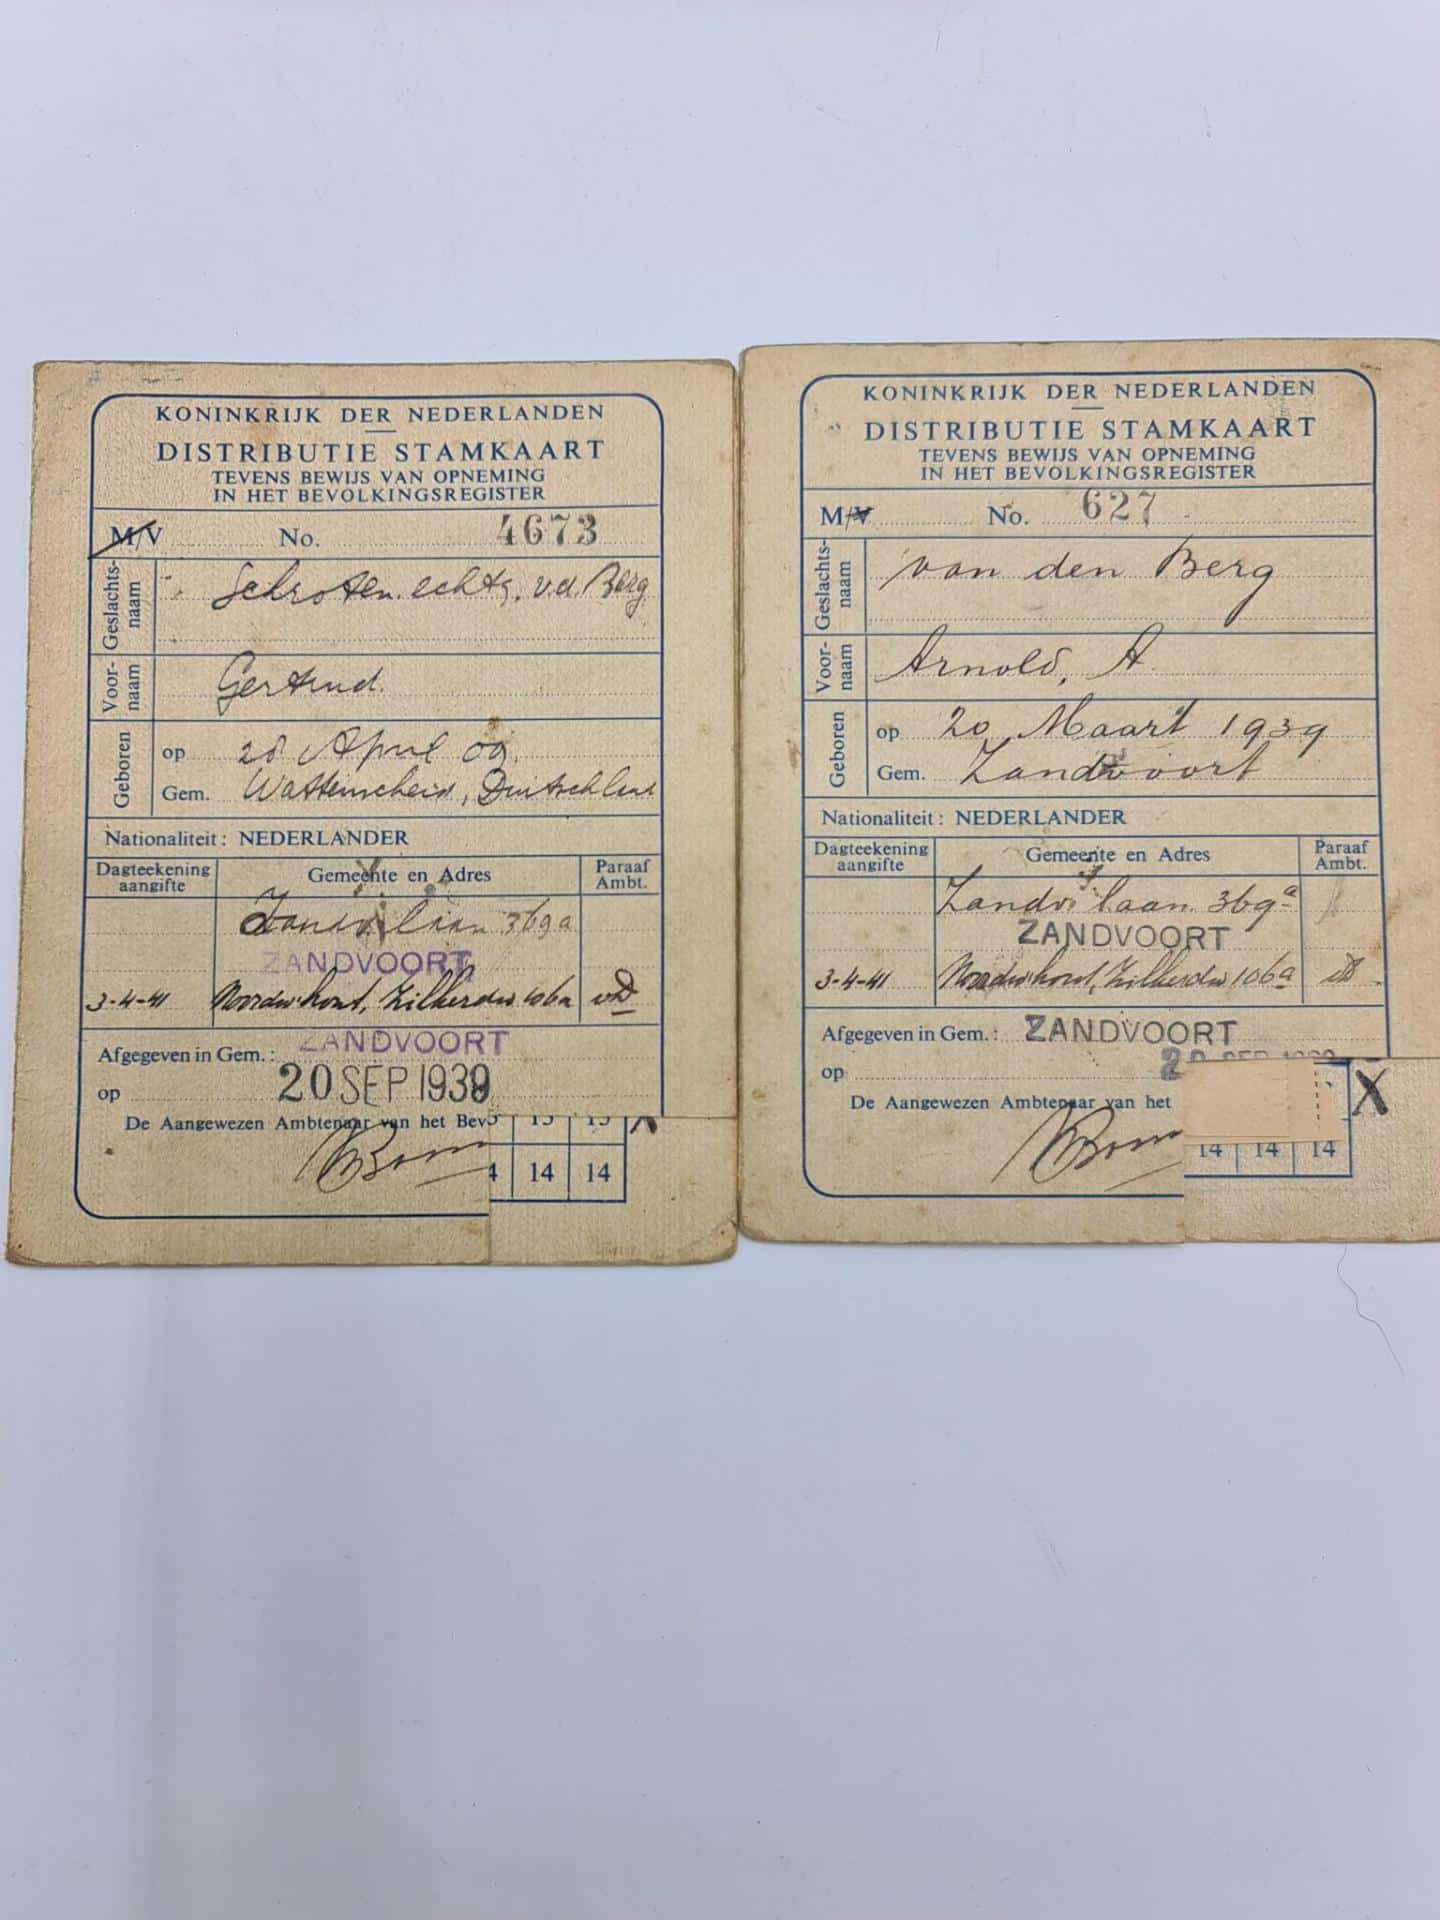 KONINKRIJK DER NEDERLANDEN
DISTRIBUTIE STAMKAART
TEVENS BEWIJS VAN OPNEMING
IN HET BEVOLKINGSREGISTER
M/V No. 4673
Geslachts-
naam
Schroten echtg. v.d. Berg
Voor-
naam
Gertrud.
Geboren
op 28 April 09.
Gem. Wattenscheid, Duitschland
Nationaliteit: NEDERLANDER
Dagteekening
aangifte
Gemeente en Adres
Paraaf
Ambt.
Zandv. laan 369a
ZANDVOORT
3-4-41 Noordw:hout, Zilkerdw 106a
Afgegeven in Gem.: ZANDVOORT
op 20 SEP 1939
De Aangewezen Ambtenaar van het Bev
15 15
14 14
X
KONINKRIJK DER NEDERLANDEN
DISTRIBUTIE STAMKAART
TEVENS BEWIJS VAN OPNEMING
IN HET BEVOLKINGSREGISTER
M/V No. 627
Geslachts-
naam
van den Berg
Voor-
naam
Arnold, A.
Geboren
op 20 Maart 1939
Gem. Zandvoort
Nationaliteit: NEDERLANDER
Dagteekening
aangifte
Gemeente en Adres
Paraaf
Ambt.
Zandv. laan 369a
ZANDVOORT
3-4-41 Noordw:hout, Zilkerdw 106a
Afgegeven in Gem.: ZANDVOORT
op 20 SEP
De Aangewezen Ambtenaar van het
X
14 14 14